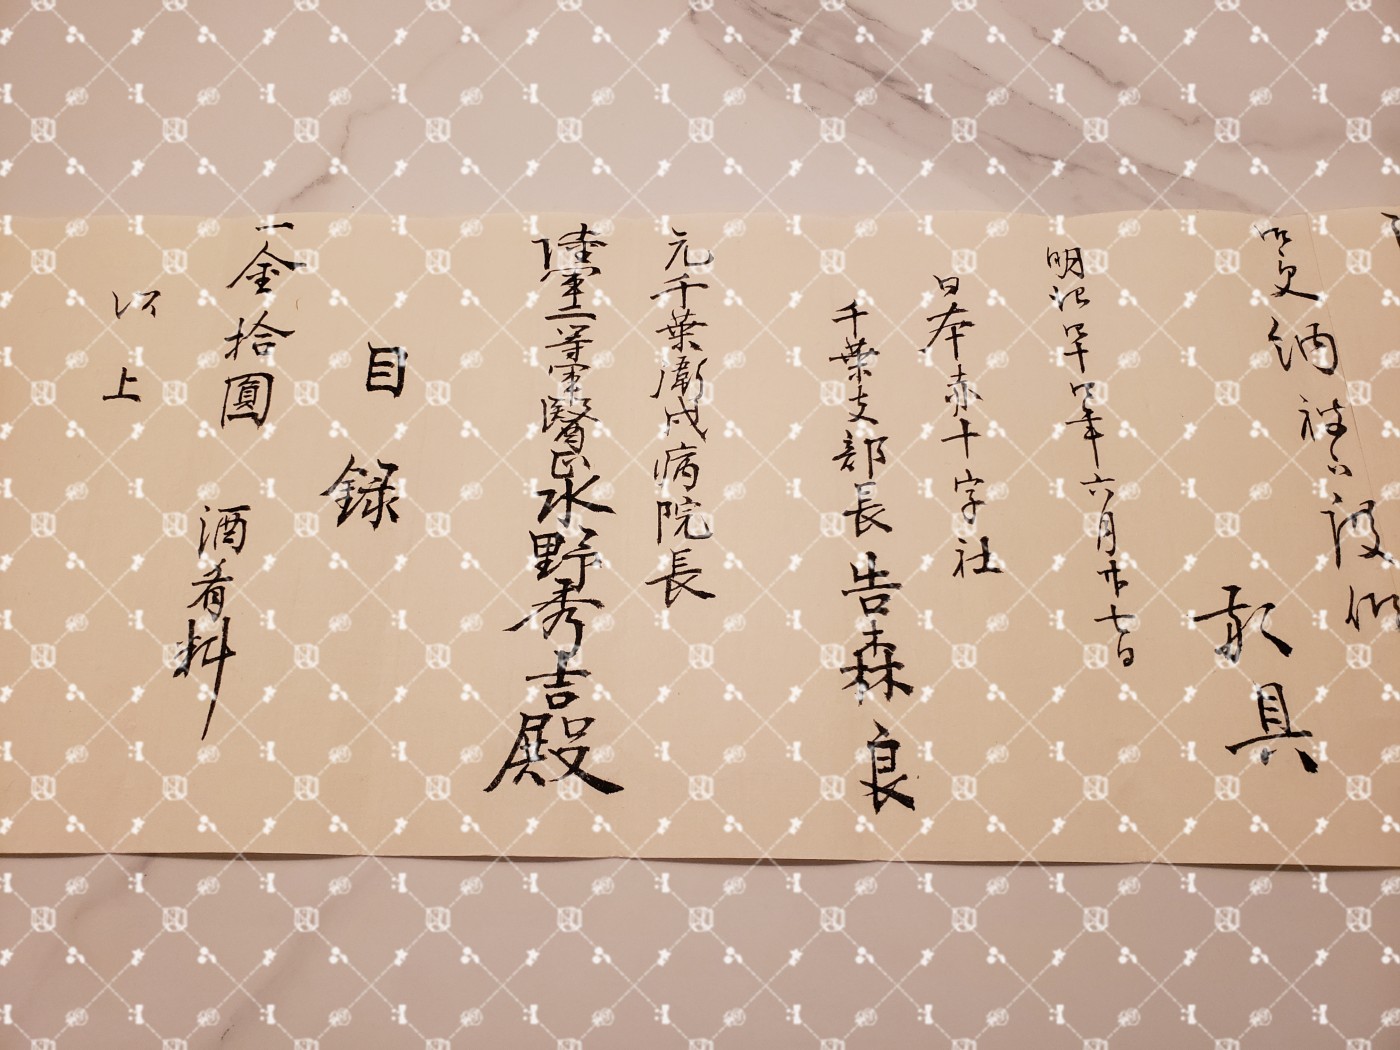 納被下度候
敬具
明治四十四年六月廿七日
日本赤十字社
千葉支部長 告森良
元千葉衛戍病院長
陸軍二等軍醫正水野秀吉殿
目録
一金拾圓
酒肴料
以上